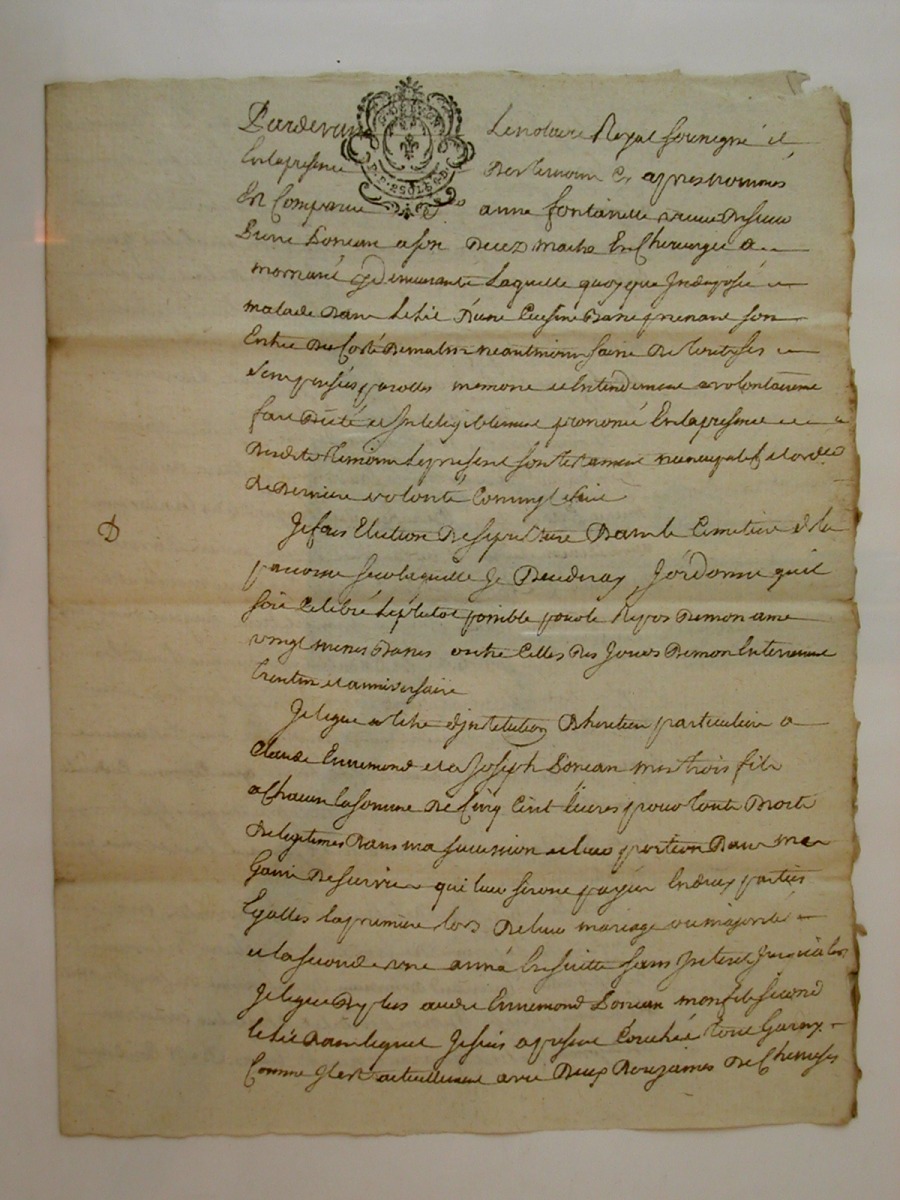 Pardevant Le notaire Royal soussigné et
En la presence Des temoins Cy apres nommés
Est Comparue d.^e anne fontanelle veuve de sieur
Dorean a son Decez maitre En Chirurgie a
mornant y demeurante Laquelle quoyque Indisposée
malade dans Le lit D'une Cuisine Basse prenant son
Entrée Du Costé De matin neantmoins saine De touts ses
sens presées parolles memoire et Entendement a volontairement
fait Dicté et Inteligiblement prononcé En la presence
Desdits temoins Le present son testament nuncupatif et ordre
De Derniere volonté Comm'Il suit
Je fais Election De sepulture Dans le Cimetiere de la
paroisse sur laquelle Je Decederay J'ordonne quil
soit Celebré Le plutot possible pour le Repos De mon ame
vingt messes Basses outre Celles Des Jours De mon Enterrement
trentin et anniversaire
Je legue a titre d'institution D'heritier particuliere a
Claude Ennemond et a Joseph Dorean mes trois fils
a Chacun La somme De Cinq Cent livres pour touts Droits
De legitimes Dans ma succession et leur portion Dans mes
Gains De survie qui leur seront payés En deux parties
Egalles la premiere lors De leur mariage ou majorité
et la seconde une année Ensuitte sans Interet Jusqu'alors
Je legue De plus audit Ennemond Dorean mon fils second
le lit Dans lequel Je suis a present Couchée tout Garny
Comme Il est actuellement avec Deux Douzaines De Chemises
D